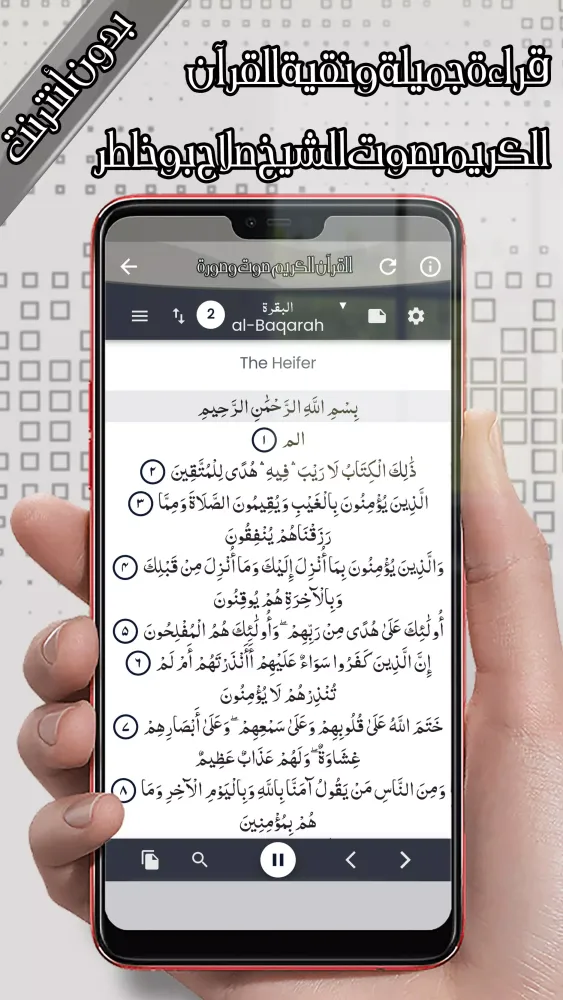 بدون أنترنت
قراءة جميلة ونقية للقرآن
الكريم بصوت الشيخ صلاح بو خاطر
القرآن الكريم صوت وصورة
2
البقرة
al-Baqarah
The Heifer
بِسْمِ اللَّهِ الرَّحْمَٰنِ الرَّحِيمِ
الم ١
ذَٰلِكَ الْكِتَابُ لَا رَيْبَ ۛ فِيهِ ۛ هُدًى لِلْمُتَّقِينَ ٢
الَّذِينَ يُؤْمِنُونَ بِالْغَيْبِ وَيُقِيمُونَ الصَّلَاةَ وَمِمَّا ٣
رَزَقْنَاهُمْ يُنْفِقُونَ
وَالَّذِينَ يُؤْمِنُونَ بِمَا أُنْزِلَ إِلَيْكَ وَمَا أُنْزِلَ مِنْ قَبْلِكَ ٤
وَبِالْآخِرَةِ هُمْ يُوقِنُونَ
أُولَٰئِكَ عَلَىٰ هُدًى مِنْ رَبِّهِمْ ۖ وَأُولَٰئِكَ هُمُ الْمُفْلِحُونَ ٥
إِنَّ الَّذِينَ كَفَرُوا سَوَاءٌ عَلَيْهِمْ أَأَنْذَرْتَهُمْ أَمْ لَمْ ٦
تُنْذِرْهُمْ لَا يُؤْمِنُونَ
خَتَمَ اللَّهُ عَلَىٰ قُلُوبِهِمْ وَعَلَىٰ سَمْعِهِمْ ۖ وَعَلَىٰ أَبْصَارِهِمْ ٧
غِشَاوَةٌ ۖ وَلَهُمْ عَذَابٌ عَظِيمٌ
وَمِنَ النَّاسِ مَنْ يَقُولُ آمَنَّا بِاللَّهِ وَبِالْيَوْمِ الْآخِرِ وَمَا ٨
هُمْ بِمُؤْمِنِينَ